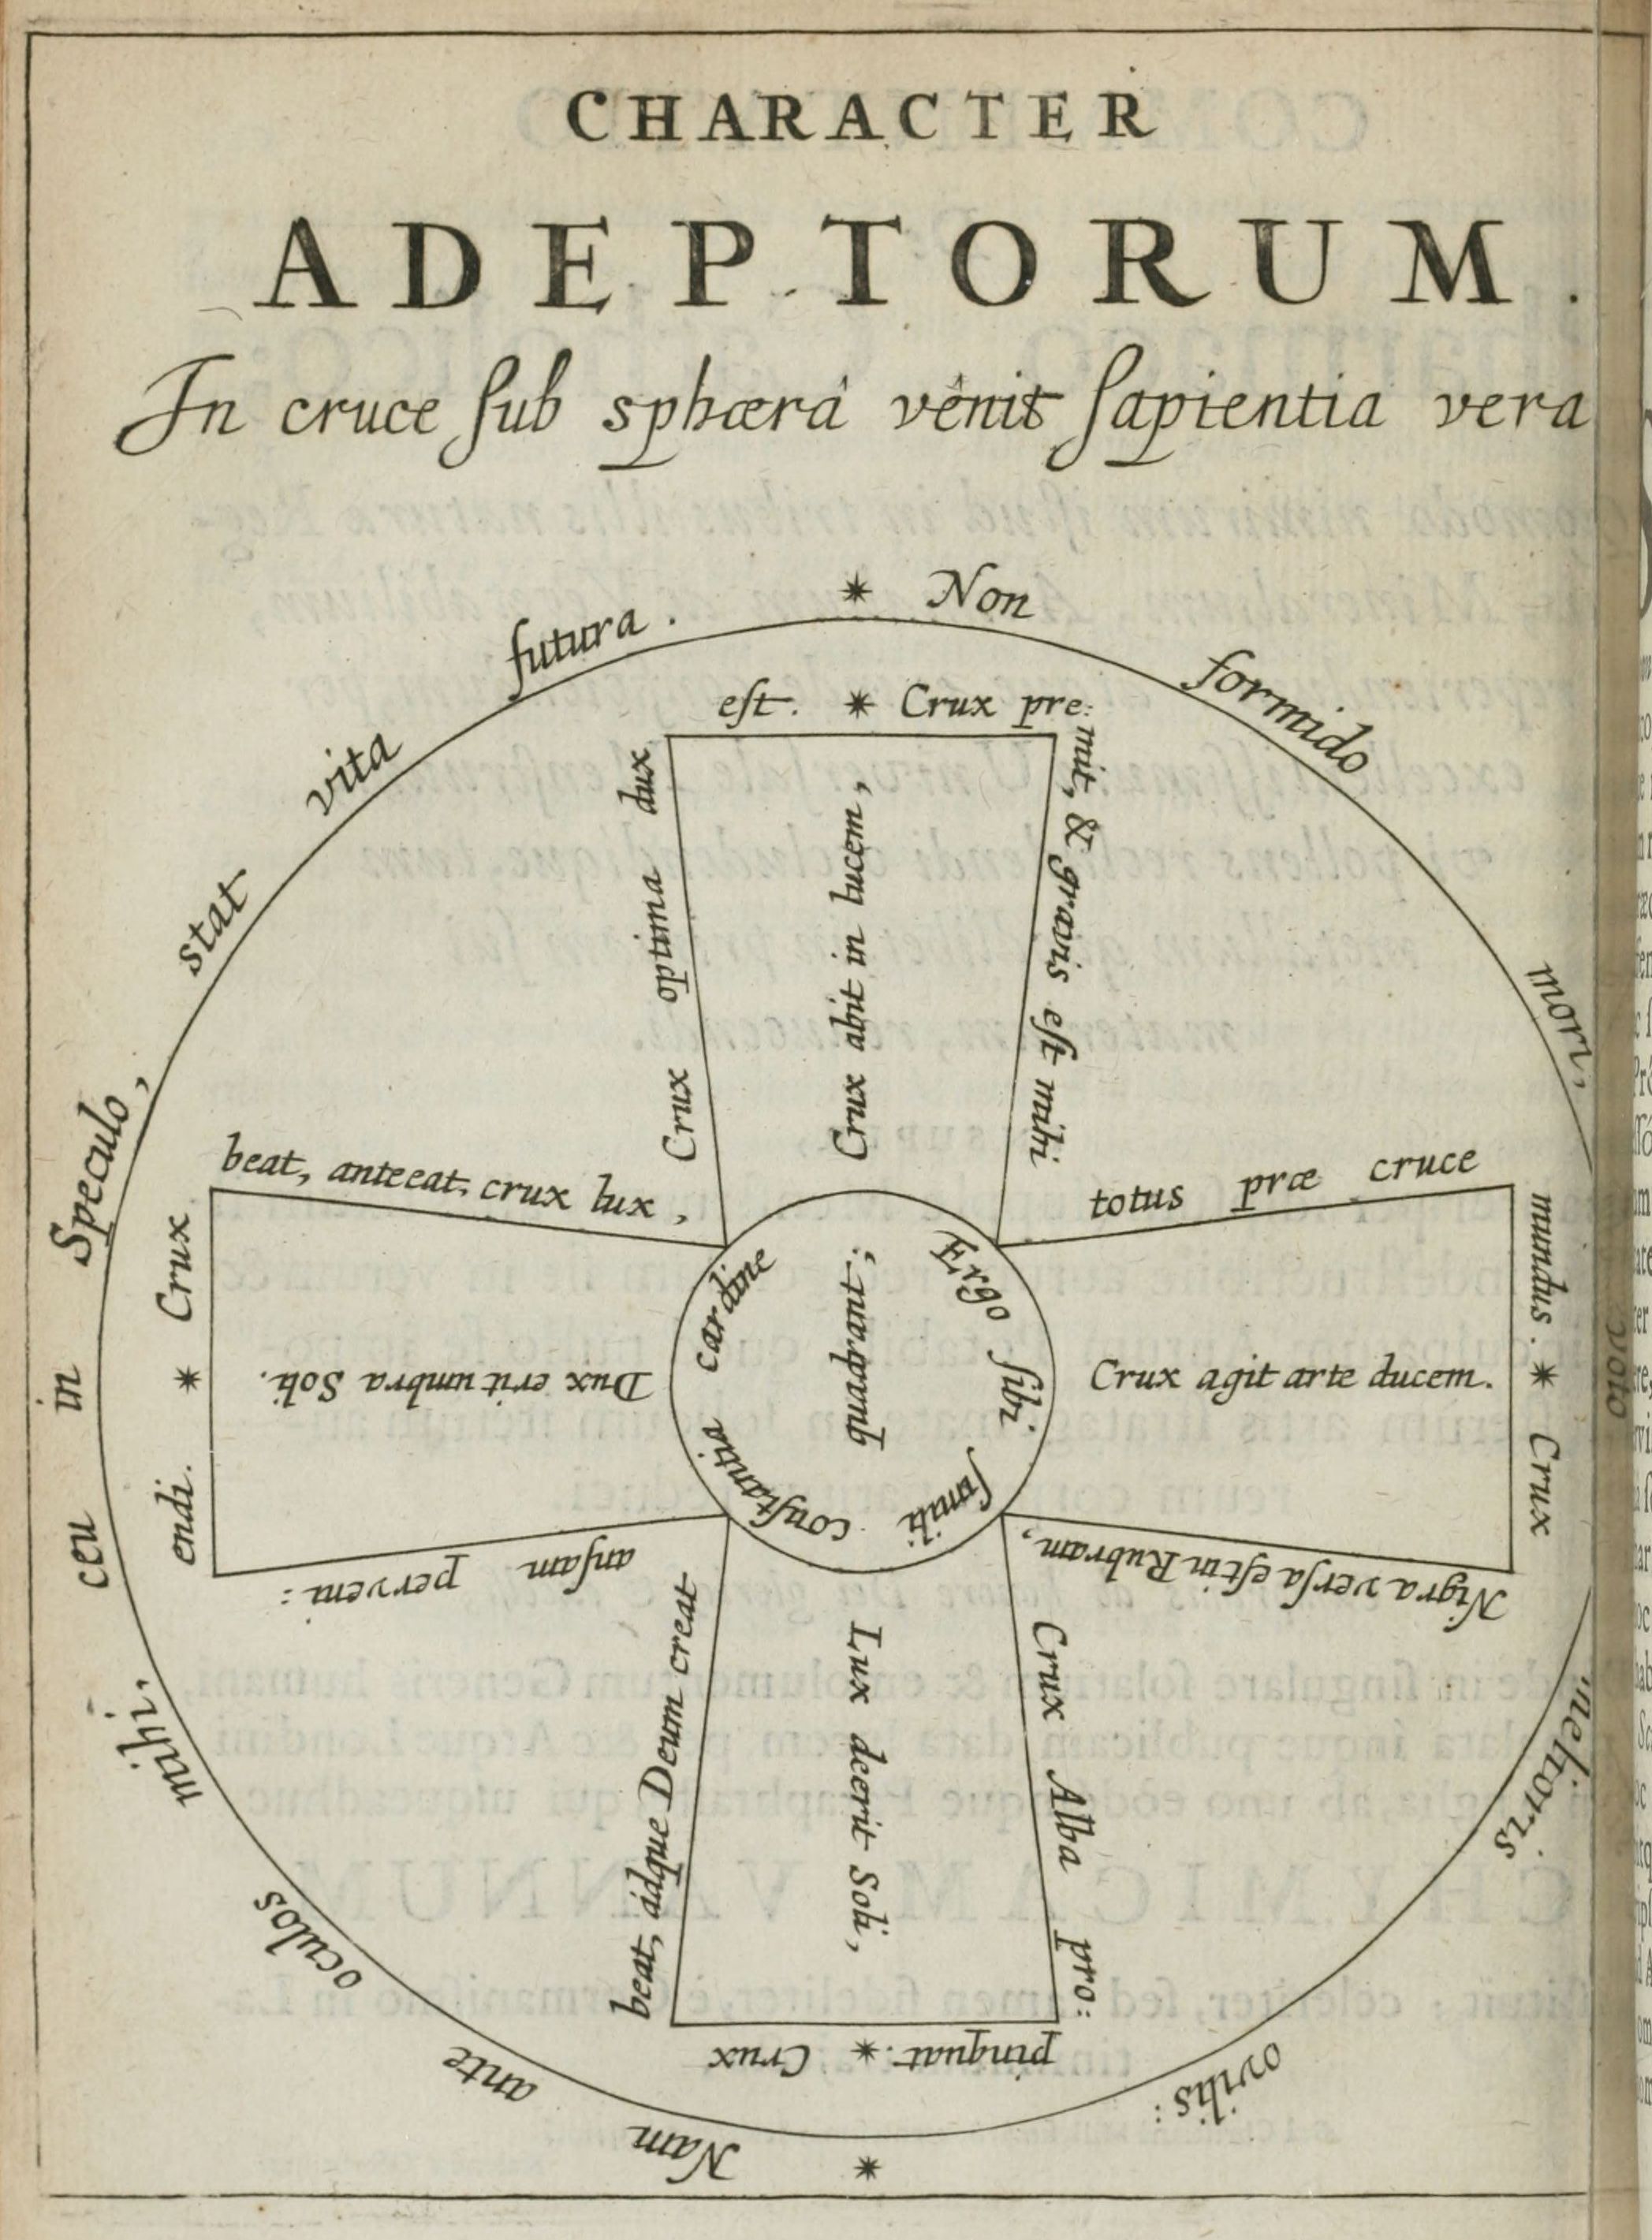 CHARACTER
ADEPTORUM.
In cruce sub sphæra venit sapientia vera
* Non formido mori, melioris ovilis:
* Nam ante oculos mihi, ceu in Speculo, stat vita futura.
* Crux pre:
mit, & gravis est mihi
totus præ cruce
mundus.
* Crux
Nigra versa est in Rubram,
Crux Alba pro:
pinquat.
* Crux
beat, adque Deum creat
ansam perveni:
endi.
* Crux
beat, anteeat, crux lux,
Crux optima dux
est.
Crux abit in lucem,
Crux agit arte ducem.
Lux deerit Soli,
Dux erit umbra Soli.
Ergo sibi simili constantia cardine
quadrant: